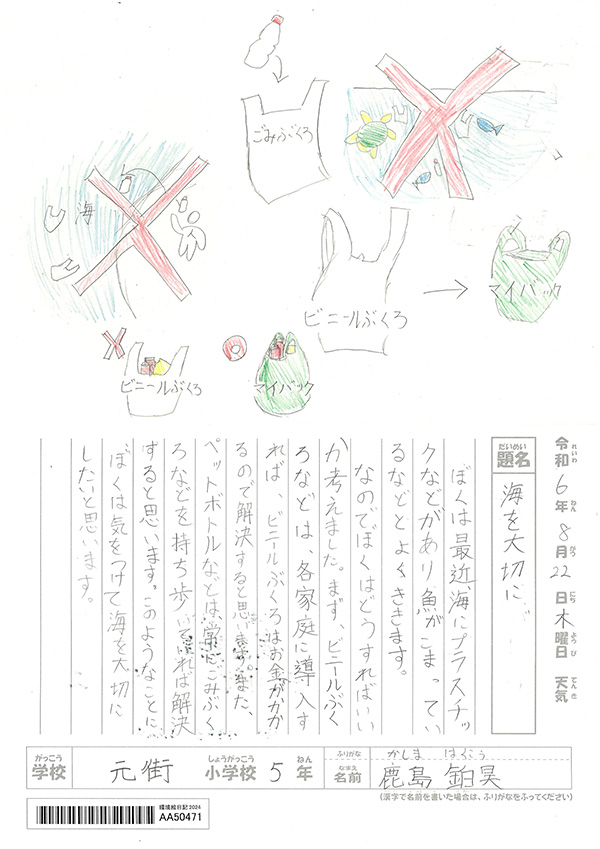 ごみぶくろ
海
ビニールぶくろ
マイバック
ビニールぶくろ
マイバック
令和6年8月22日木曜日 天気
れいわ ねん がつ にち ようび てんき
だいめい
題名
海を大切に
ぼくは最近、海にプラスチッ
クなどがあり魚がこまってい
るなどとよくききます。
なのでぼくはどうすればいい
か考えました。まず、ビニールぶく
ろなどは、各家庭に導入す
れば、ビニールぶくろはお金がかか
るので解決すると思います。また、
ペットボトルなどは常にごみぶく
ろなどを持ち歩いていれば解決
すると思います。このようなことに
ぼくは気をつけて海を大切に
したいと思います。
がっこう
学校
元街
しょうがっこう
小学校
5
ねん
年
ふりがな
かしま はくこう
なまえ
名前
鹿島 鉑昊
(漢字で名前を書いた場合は、ふりがなをふってください)
環境絵日記2024
AA50471